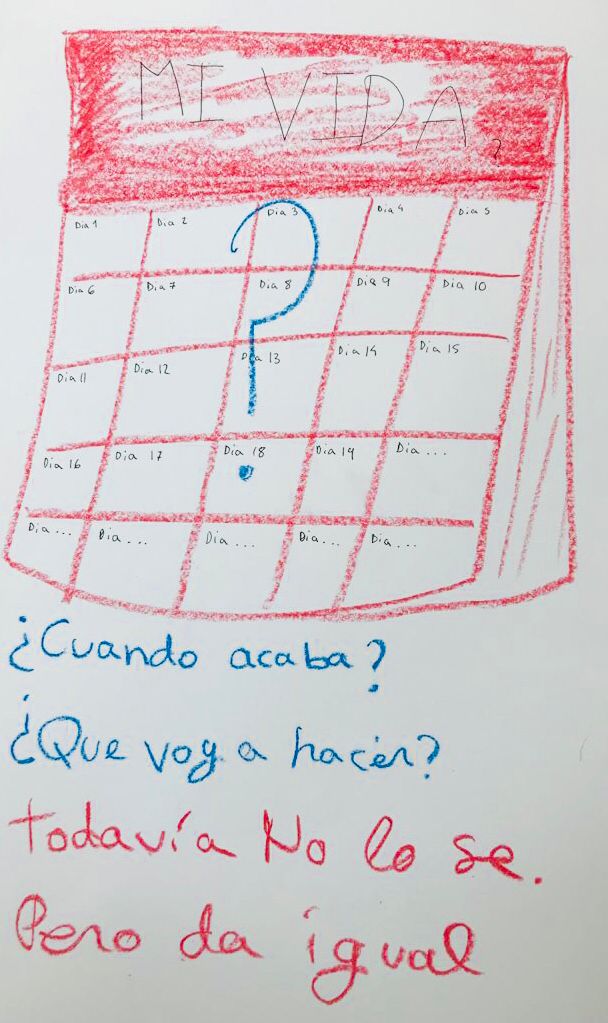 MI VIDA
?
Dia 1 Dia 2 Dia 3 Dia 4 Dia 5
Dia 6 Dia 7 Dia 8 Dia 9 Dia 10
Dia 11 Dia 12 Dia 13 Dia 14 Dia 15
Dia 16 Dia 17 Dia 18 Dia 19 Dia ...
Dia ... Dia ... Dia ... Dia ... Dia ...
?
¿Cuando acaba?
¿Que voy a hacer?
todavía No lo se.
Pero da igual